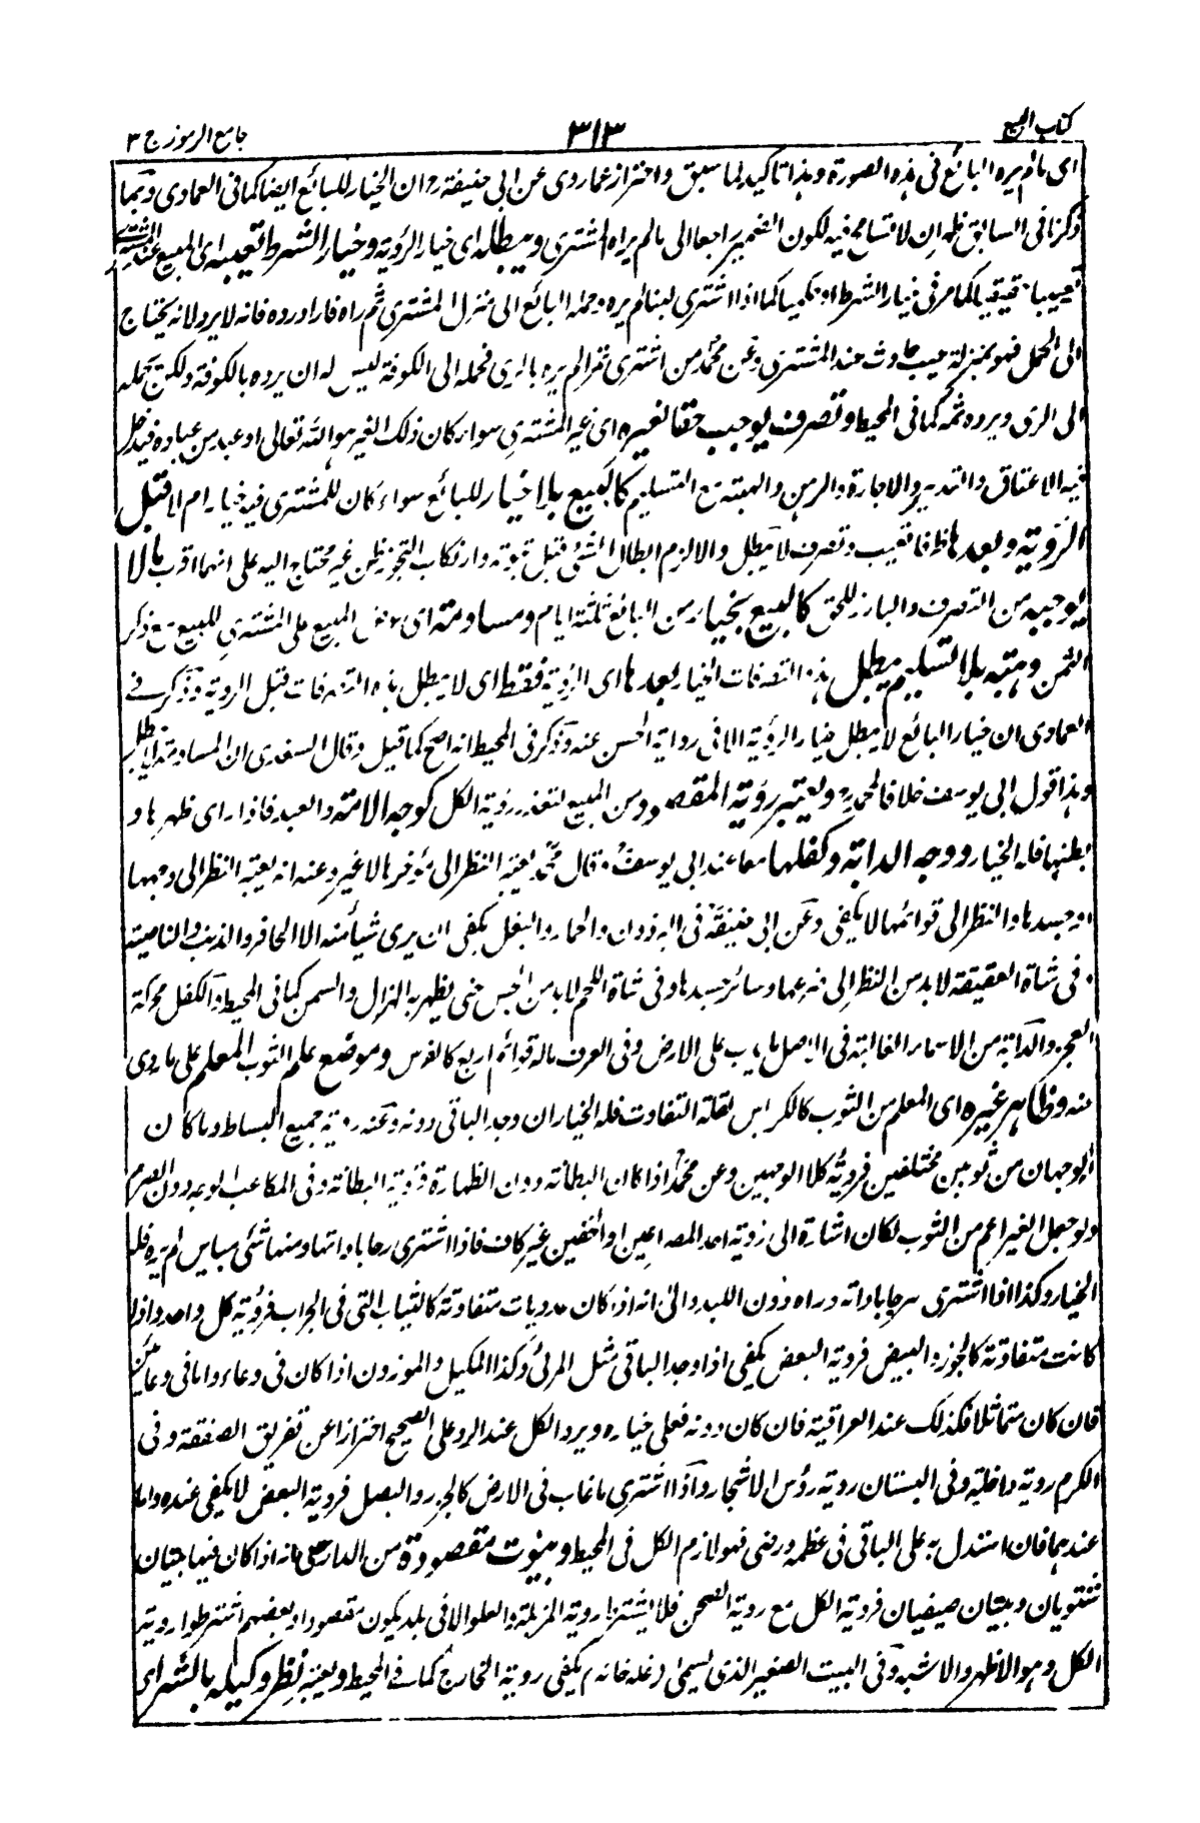 كتاب البيع
٣١٣
جامع الرموز ج ٣
اى مالم يره البائع فى هذه الصورة وهذا تاكيد لما سبق واحتراز عما روى عن ابى حنيفة رح ان الخيار للبائع ايضا كما فى العمادى وبما
ذكرنا فى السابق ظهر ان لا تسامح فيه لكون الضمير راجعا الى مالم يراه المشترى ويبطله اى خيار الرؤية وخيار الشرط تعيبه اى المبيع عند المشترى
تعييبا حقيقيا كما مر فى خيار الشرط او حكميا كما اذا اشترى لبنا لم يره وحمله البائع الى منزل المشترى ثم راه فاراد رده فانه لا يرد لانه يحتاج
الى الحمل فهو بمنزلة عيب حادث عند المشترى وعن محمد من اشترى لم يره بالرى فحمله الى الكوفة ليس له ان يرده بالكوفة ولكن يحمله
الى الرى ويرده ثمه كما فى المحيط وتصرف يوجب حقا لغيره اى غير المشترى سواء كان ذلك الغير هو الله تعالى او عبد من عباده فيدخل
فيه الاعتاق والتدبير والاجارة والرهن والهبة مع التسليم كالبيع بلا خيار للبائع سواء كان للمشترى فيه خيار ام لا قبل
الرؤية وبعدها تعيب وتصرف لا يبطل والا لزم ابطال الشئ قبل ثبوته وارتكاب التجوز ظن غير محتاج اليه على انهما اقرب مالا
يوجبه من التصرف والبارز للحق كالبيع بخيار من البائع ثلثة ايام ومساومته اى عرض المبيع على المشترى للبيع مع ذكر
الثمن وهبته بلا تسليم يبطل هذه التصرفات الخيار بعدها اى الرؤية فقط اى لا يبطل بهذه التصرفات قبل الروية وذكر فے
العمادى ان خيار البائع لا يبطل خيار الرؤية الا فى رواية الحسن عنه وذكر فى المحيط انه اصح كما قيل وقال السغدى ان المساومة لا يبطل
وهذا قول ابى يوسف خلافا لمحمد رح ويعتبر رؤية المقصود من المبيع لتعذر رؤية الكل كوجه الامة والعبد فاذا راى ظهرها و
بطنها فله الخيار ووجه الدابة وكفلها معا عند ابى يوسف وقال محمد يعتبر النظر الى مؤخرها لا غير وعنه انه يعتبر النظر الى وجهها
او جسدها والنظر الى قوائمها لا يكفى وعن ابى حنيفة فى البرذون والحمار والبغل يكفى ان يرى شيأ منه الا الحافر والذنب والناصية
وفى شاة العقيقة لا بد من النظر الى ضرعها وسائر جسدها وفى شاة اللحم لا بد من الجس حتى يظهر به الهزال والسمن كما فى المحيط والكفل محركة
العجز والدابة من الاسماء الغالبة فى الاصل ما يدب على الارض وفى العرف ماله قوائم اربع كالفرس وموضع علم الثوب المعلم على ما روى
عنه وظاهر غيره اى المعلم من الثوب كالكرابس لقلة التفاوت فله الخيار ان وجد الباقى دونه وعنه روية جميع البساط وما كان
الوجهان من ثوبين مختلفين فروية كلا الوجهين وعن محمد اذا كان البطانة دون الظهارة فروية البطانة وفى المكاعب الوجه دون الصرم
ولو جعل الغير اعم من الثوب لكان اشارة الى ان روية احد المصراعين او الخفين غير كاف فاذا اشترى رحا باداتها ومنها شئ مباين لم يره فله
الخيار وكذا اذا اشترى سرجا باداته وراه دون اللبد والى انه اذا كان عدديات متفاوتة كالثياب التى فى الجراب فروية كل واحد واذا
كانت متفاوتة كالجوز والبيض فروية البعض يكفى اذا وجد الباقى مثل المرئى وكذا المكيل والموزون اذا كان فى وعاء واما فى وعائين
فان كان متماثلا فكذلك عند العراقية فان كان دونه فعلى خياره ويرد الكل عند الرد على الصحيح احترازا عن تفريق الصفقة وفى
الكرم روية داخله وفى البستان روية رؤس الاشجار واذا اشترى ما غاب فى الارض كالجزر والبصل فروية البعض لا يكفى عنده واما
عندهما فان استدل به على الباقى فى عظمه ورضى فهو لازم الكل فى المحيط وبيوت مقصودة من الدار حتى انه اذا كان فيها بيتان
شتويان وبيتان صيفيان فروية الكل مع روية الصحن فلا يشترط روية المزبلة والعلو الا فى بلد يكون مقصودا وبعضهم اشترطوا روية
الكل وهو الاظهر والاشبه وفى البيت الصغير الذى يسمى غله خانه يكفى روية الخارج كما فے المحيط ويعتبر نظر وكيله بالشراء